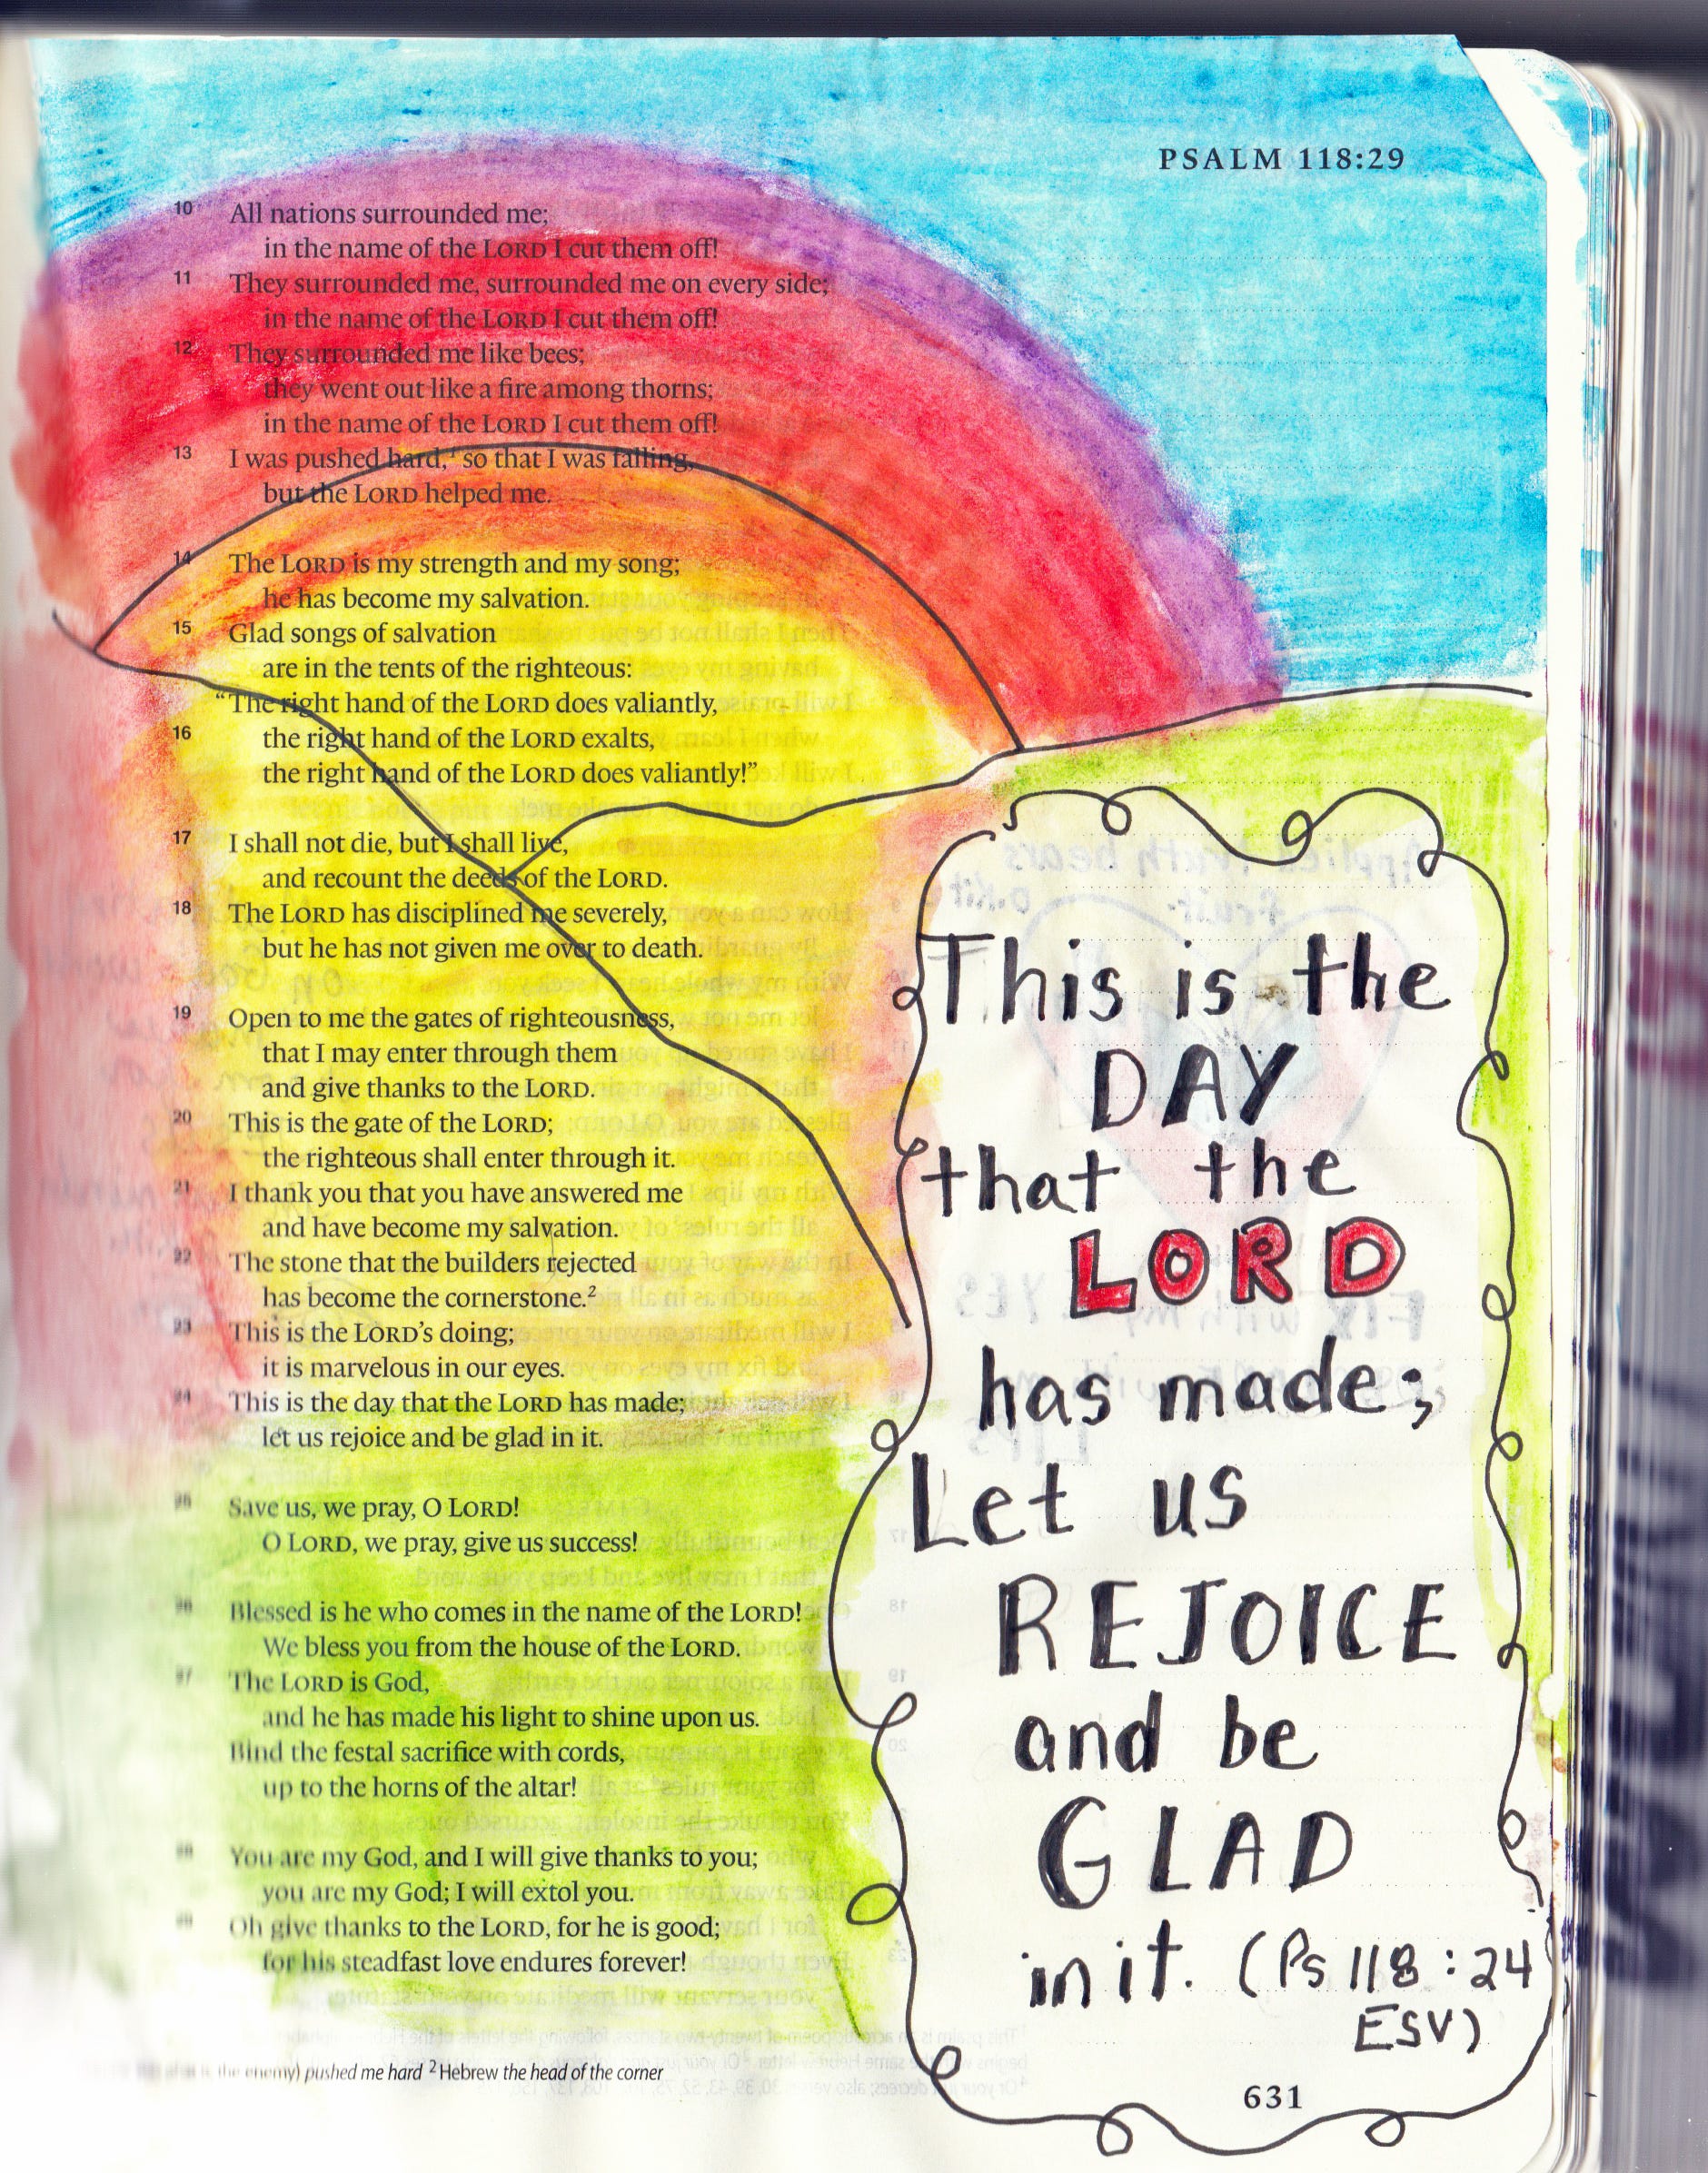 PSALM 118:29
10 All nations surrounded me;
in the name of the LORD I cut them off!
11 They surrounded me, surrounded me on every side;
in the name of the LORD I cut them off!
12 They surrounded me like bees;
they went out like a fire among thorns;
in the name of the LORD I cut them off!
13 I was pushed hard,¹ so that I was falling,
but the LORD helped me.
14 The LORD is my strength and my song;
he has become my salvation.
15 Glad songs of salvation
are in the tents of the righteous:
“The right hand of the LORD does valiantly,
16 the right hand of the LORD exalts,
the right hand of the LORD does valiantly!”
17 I shall not die, but I shall live,
and recount the deeds of the LORD.
18 The LORD has disciplined me severely,
but he has not given me over to death.
19 Open to me the gates of righteousness,
that I may enter through them
and give thanks to the LORD.
20 This is the gate of the LORD;
the righteous shall enter through it.
21 I thank you that you have answered me
and have become my salvation.
22 The stone that the builders rejected
has become the cornerstone.²
23 This is the LORD’s doing;
it is marvelous in our eyes.
24 This is the day that the LORD has made;
let us rejoice and be glad in it.
25 Save us, we pray, O LORD!
O LORD, we pray, give us success!
26 Blessed is he who comes in the name of the LORD!
We bless you from the house of the LORD.
27 The LORD is God,
and he has made his light to shine upon us.
Bind the festal sacrifice with cords,
up to the horns of the altar!
28 You are my God, and I will give thanks to you;
you are my God; I will extol you.
29 Oh give thanks to the LORD, for he is good;
for his steadfast love endures forever!
the enemy) pushed me hard ² Hebrew the head of the corner
This is the
DAY
that the
LORD
has made;
Let us
REJOICE
and be
GLAD
in it. (Ps 118:24
ESV)
631